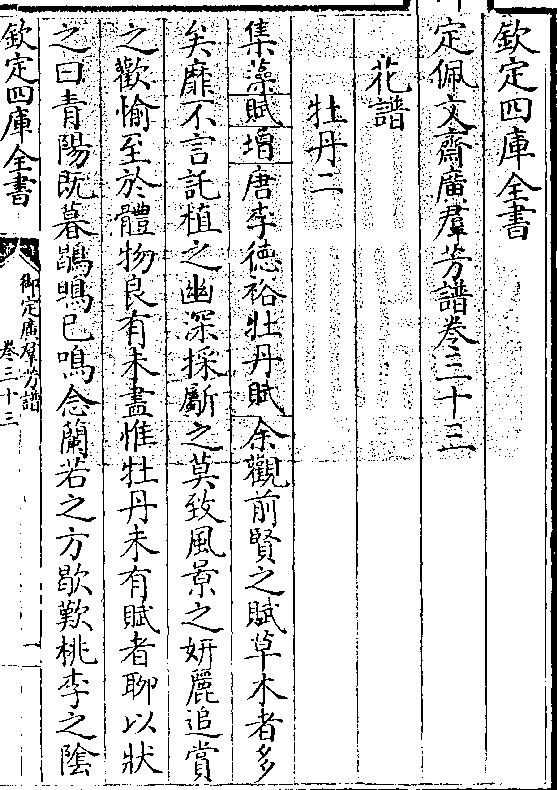 欽定四庫全書
定佩文齋廣羣芳譜卷三十三
花譜
牡丹二
集藻賦增唐李德裕牡丹賦余觀前賢之賦草木者多
矣靡不言託植之幽深採斸之莫致風景之妍麗追賞
之歡愉至於體物良有未盡惟牡丹未有賦者聊以狀
之曰青陽既暮鵾鴠已鳴念蘭若之方歇歎桃李之陰
欽定四庫全書
御定廣羣芳譜
卷三十三
一